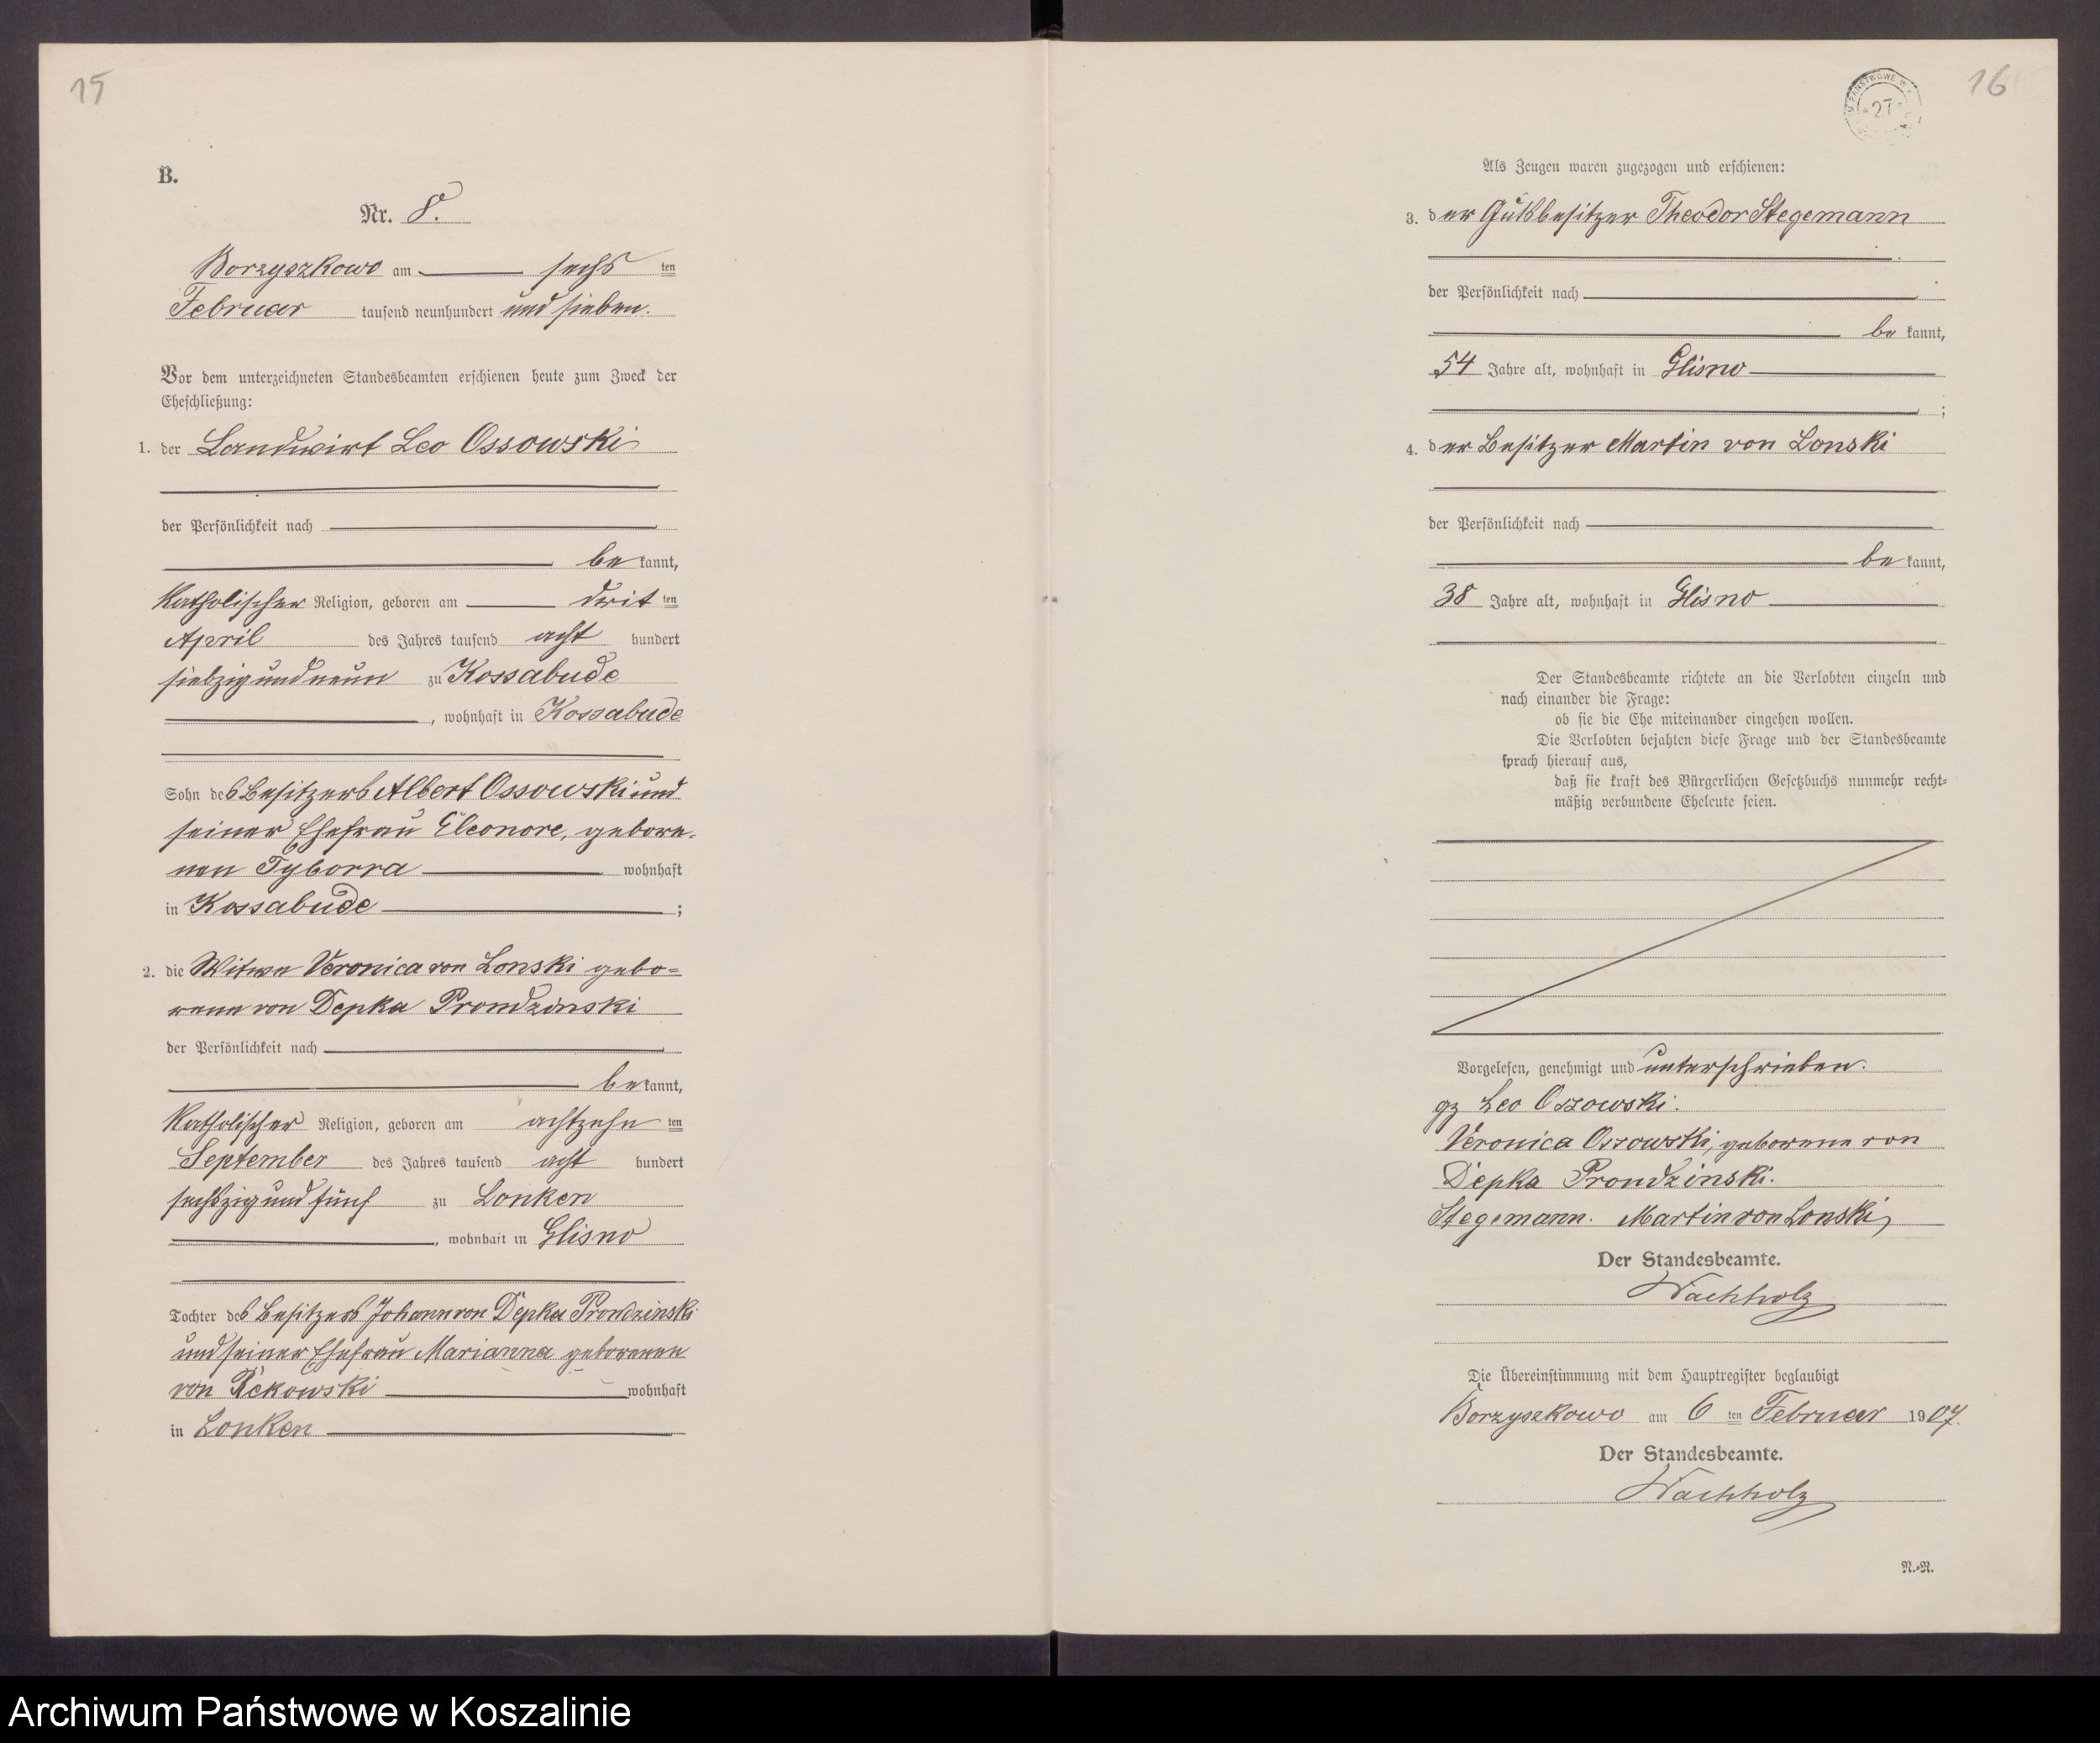 15
B.
Nr. 8.
Borzyszkowo am sechs ten
Februar tausend neunhundert und sieben.
Vor dem unterzeichneten Standesbeamten erschienen heute zum Zweck der
Eheschließung:
1. der Landwirt Leo Ossowski
der Persönlichkeit nach
be kannt,
Katholischer Religion, geboren am drit ten
April des Jahres tausend acht hundert
siebzig und neun zu Kossabude
, wohnhaft in Kossabude
Sohn des Besitzers Albert Ossowski und
seiner Ehefrau Eleonore, gebore-
nen Tyborra wohnhaft
in Kossabude ;
2. die Witwe Veronica von Lonski gebo=
rene von Depka Prondzinski
der Persönlichkeit nach
be kannt,
Katholischer Religion, geboren am achtzehn ten
September des Jahres tausend acht hundert
sechszig und fünf zu Lonken
, wohnhaft in Glisno
Tochter des Besitzers Johann von Depka Prondzinski
und seiner Ehefrau Marianna geborenen
von Rekowski wohnhaft
in Lonken
16
27
Als Zeugen waren zugezogen und erschienen:
3. der Gutsbesitzer Theodor Stegemann
der Persönlichkeit nach
be kannt,
54 Jahre alt, wohnhaft in Glisno
;
4. der Besitzer Martin von Lonski
der Persönlichkeit nach
be kannt,
38 Jahre alt, wohnhaft in Glisno
Der Standesbeamte richtete an die Verlobten einzeln und
nach einander die Frage:
ob sie die Ehe miteinander eingehen wollen.
Die Verlobten bejahten diese Frage und der Standesbeamte
sprach hierauf aus,
daß sie kraft des Bürgerlichen Gesetzbuchs nunmehr recht=
mäßig verbundene Eheleute seien.
Vorgelesen, genehmigt und unterschrieben.
gz Leo Ossowski.
Veronica Ossowski, geborene von
Depka Prondzinski.
Stegemann. Martin von Lonski
Der Standesbeamte.
Wachholz
Die Übereinstimmung mit dem Hauptregister beglaubigt
Borzyszkowo am 6 ten Februar 1907.
Der Standesbeamte.
Wachholz
N.=R.
Archiwum Państwowe w Koszalinie